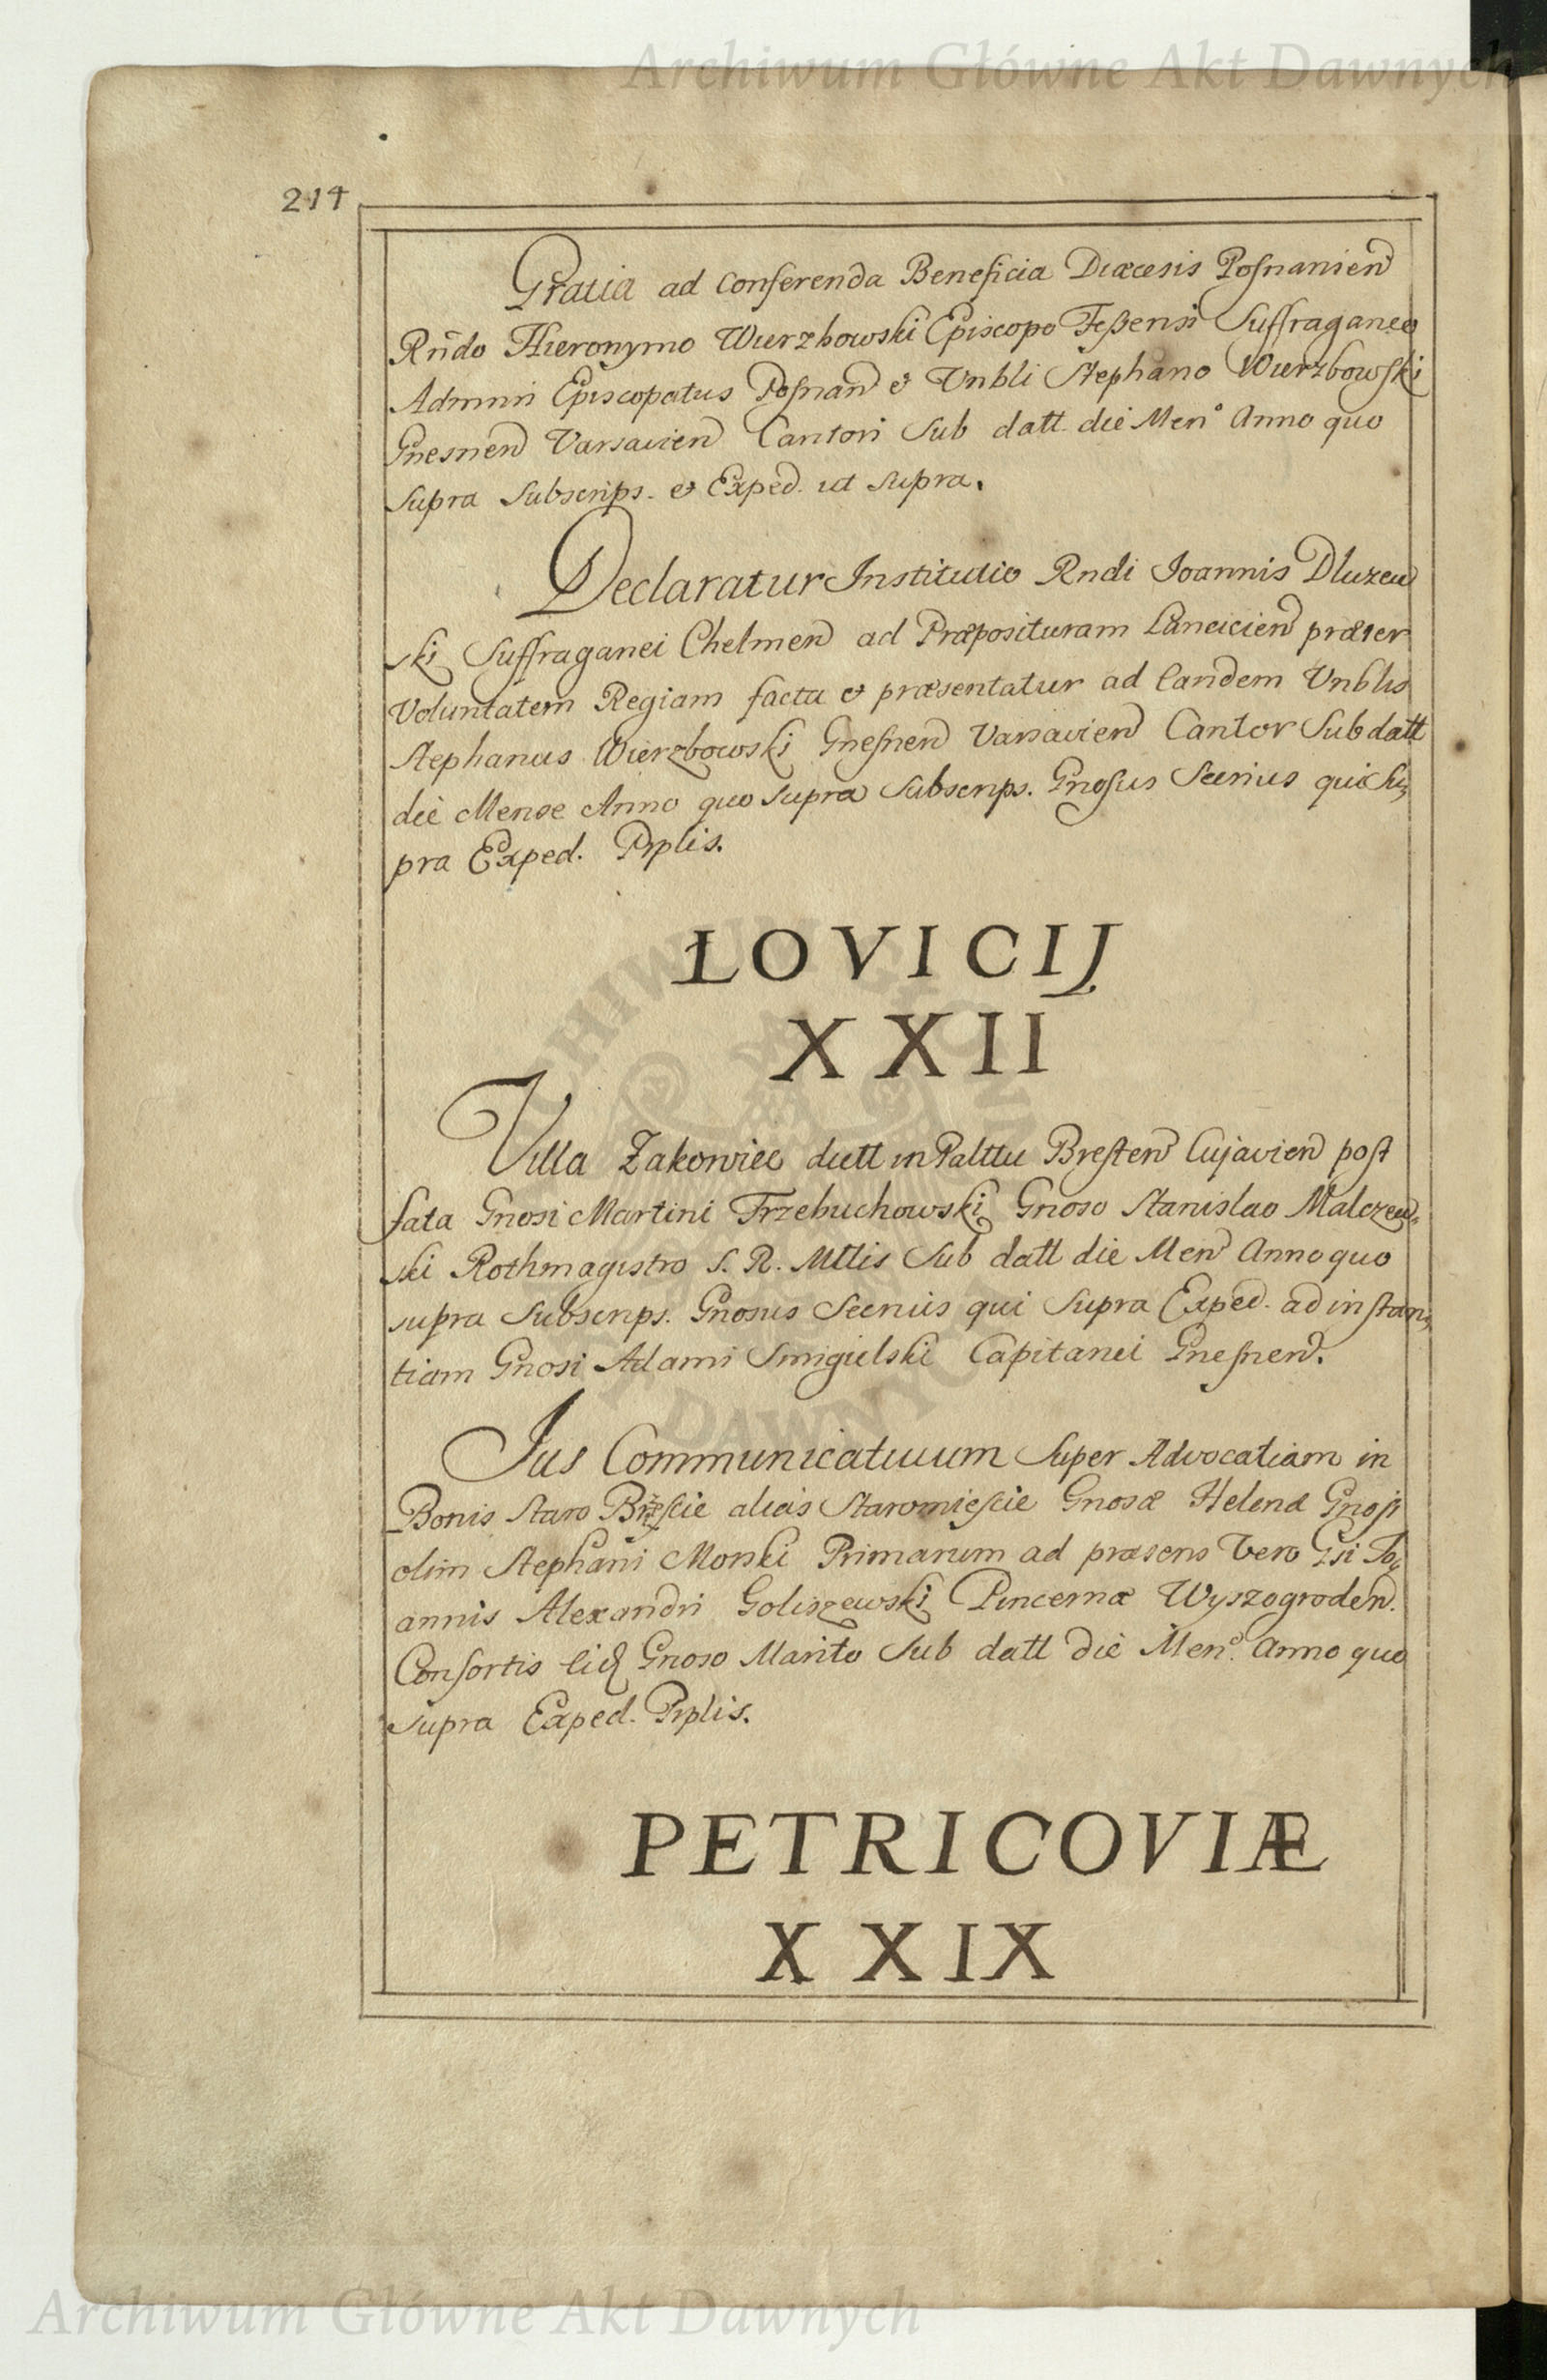 Archiwum Główne Akt Dawnych
214
Gratia ad conferenda Beneficia Diæcesis Posnanien
Rndo Hieronymo Wierzbowski Episcopo Feßensi Suffraganeo
Admnri Episcopatus Posnan & Vnbli Stephano Wierzbowski
Gnesnen Varsavien Cantori Sub datt die Men° Anno quo
supra Subscrips. & Exped. ut supra.
Declaratur Institutio Rndi Joannis Dluzew
ski Suffraganei Chelmen ad Præposituram Lancicien præter
Voluntatem Regiam facta & præsentatur ad eandem Vnblis
Stephanus Wierzbowski Gnesnen Varsavien Cantor Sub datt
die Mense Anno quo supra Subscrips. Gnosus Secrius qui Su,
pra Exped. Prplis.
ŁOVICIJ
XXII
Villa Zakowiec dictt in Palttu Bresten Cujavien post
fata Gnosi Martini Trzebuchowski Gnoso Stanislao Malczew-
ski Rothmagistro S. R. Mttis Sub datt die Men Anno quo
supra Subscrips. Gnosus Secrius qui Supra Exped. ad instan,
tiam Gnosi Adami Smigielski Capitanei Gnesnen.
Jus Communicativum Super Advocatiam in
Bonis Staro Brzescie alias Staromiescie Gnosæ Helenæ Gnosi
olim Stephani Morski Primarum ad præsens Vero Gsi Jo,
annis Alexandri Goliszewski Pincernæ Wyszogroden.
Consortis Gnoso Marito Sub datt die Men°. Anno quo
supra Exped. Prplis.
PETRICOVIÆ
XXIX
Archiwum Główne Akt Dawnych